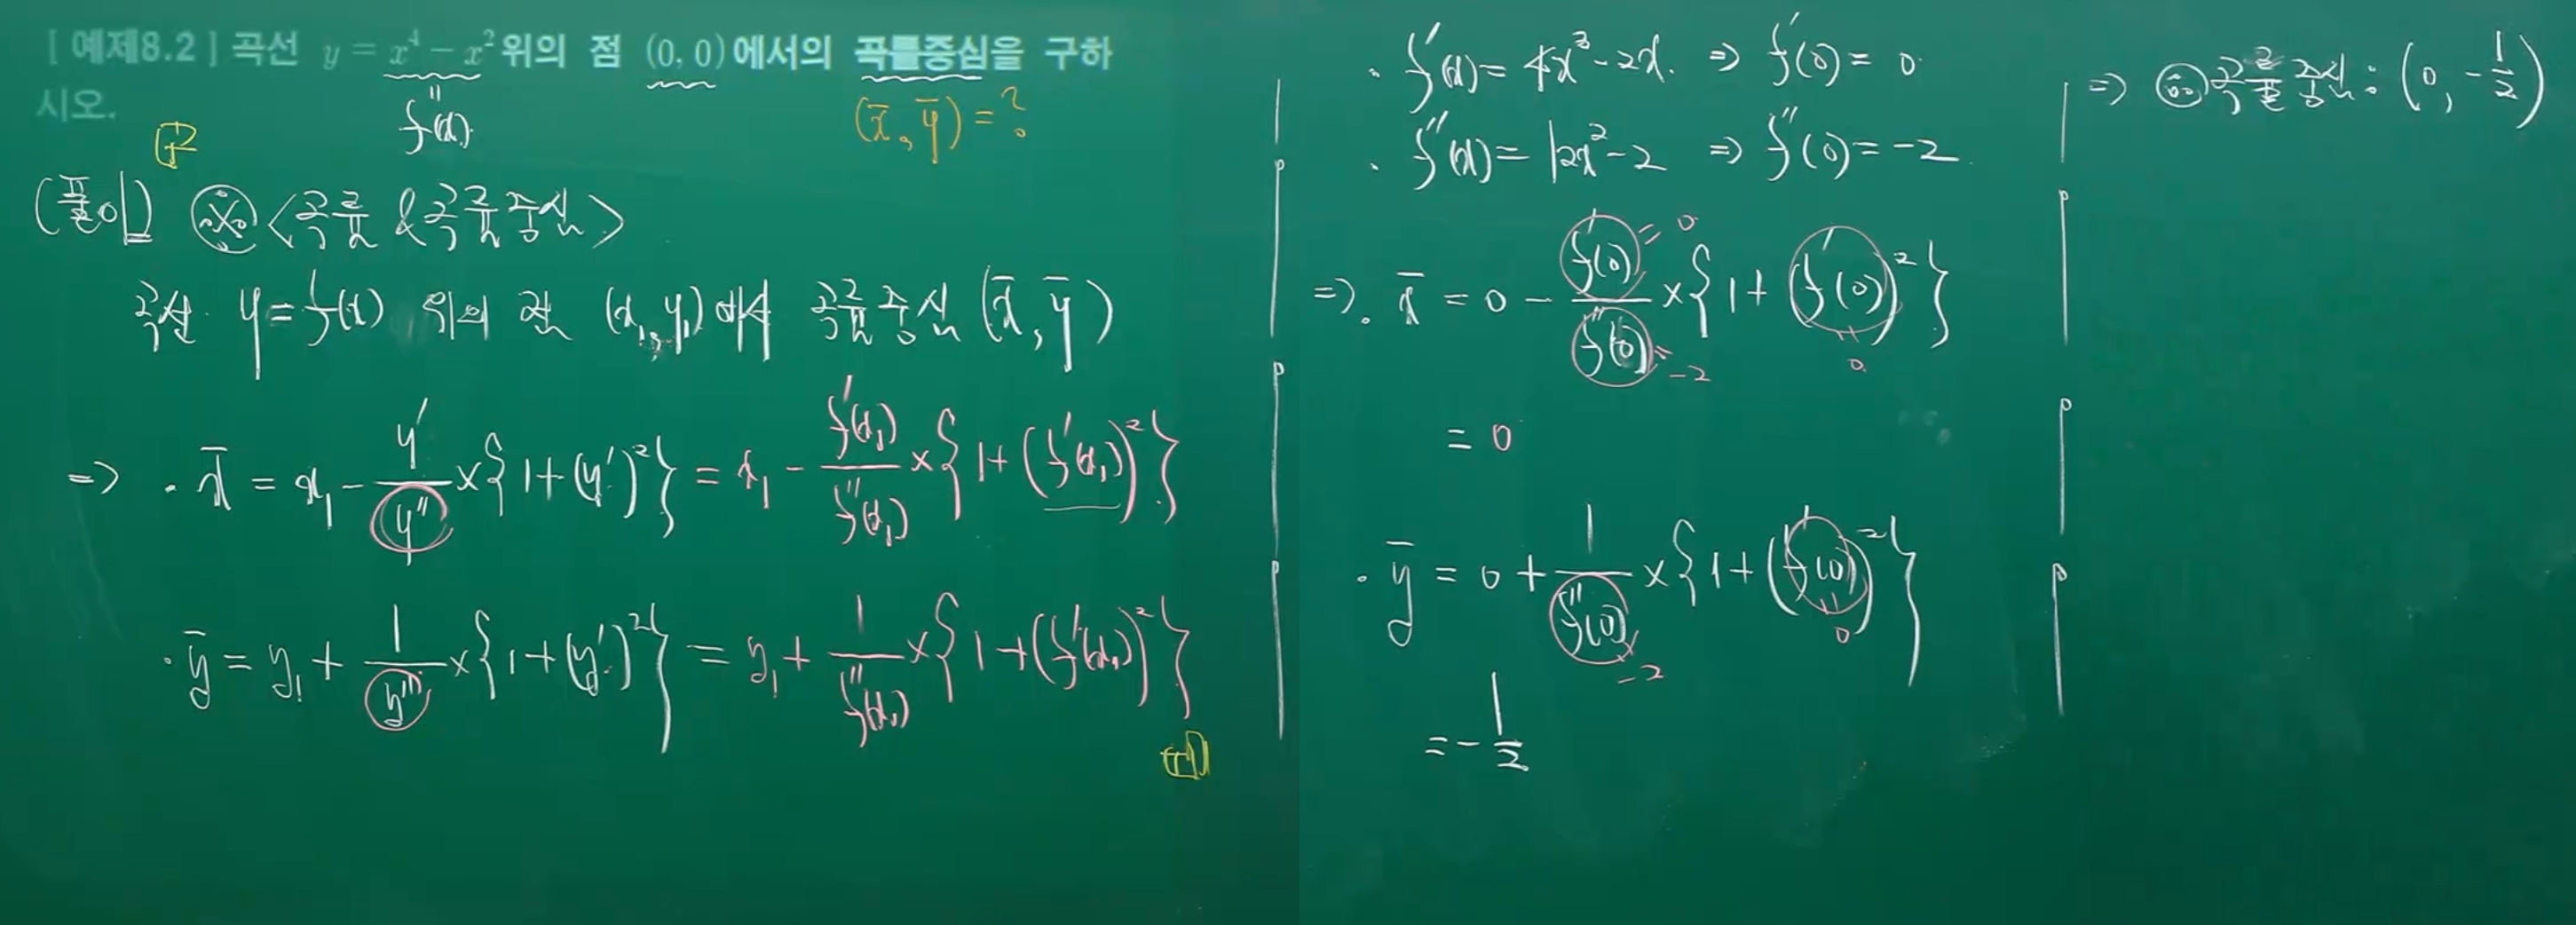 [ 예제8.2 ] 곡선 y = x⁴ − x² 위의 점 (0, 0)에서의 곡률중심을 구하
시오.
f(x)
(x̄, ȳ) = ?
(풀이) ※ <곡률 & 곡률중심>
곡선 y = f(x) 위의 점 (x₁, y₁)에서 곡률중심 (x̄, ȳ)
⇒ · x̄ = x₁ − y′/y″ × {1 + (y′)²} = x₁ − f′(x₁)/f″(x₁) × {1 + (f′(x₁))²}
· ȳ = y₁ + 1/y″ × {1 + (y′)²} = y₁ + 1/f″(x₁) × {1 + (f′(x₁))²}
· f′(x) = 4x³ − 2x. ⇒ f′(0) = 0.
· f″(x) = 12x² − 2 ⇒ f″(0) = −2
⇒ · x̄ = 0 − f′(0)/f″(0) × {1 + (f′(0))²}
= 0
= −2
0
= 0
· ȳ = 0 + 1/f″(0) × {1 + (f′(0))²}
−2
0
= −1/2
⇒ 곡률중심 : (0, −1/2)